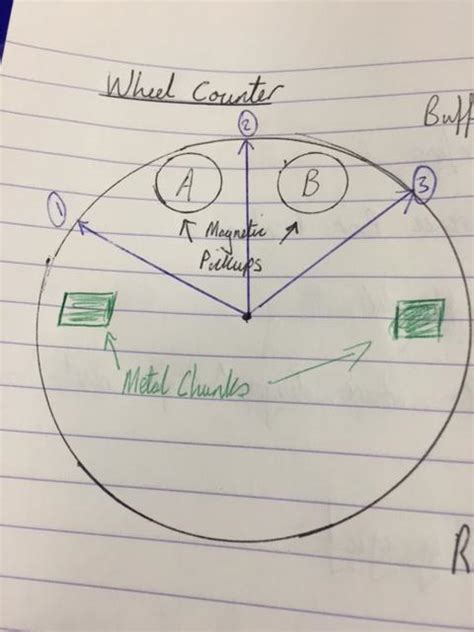 Wheel Counter
Buff
2
A
B
1
3
Magnetic
Pickups
Metal Chunks
R